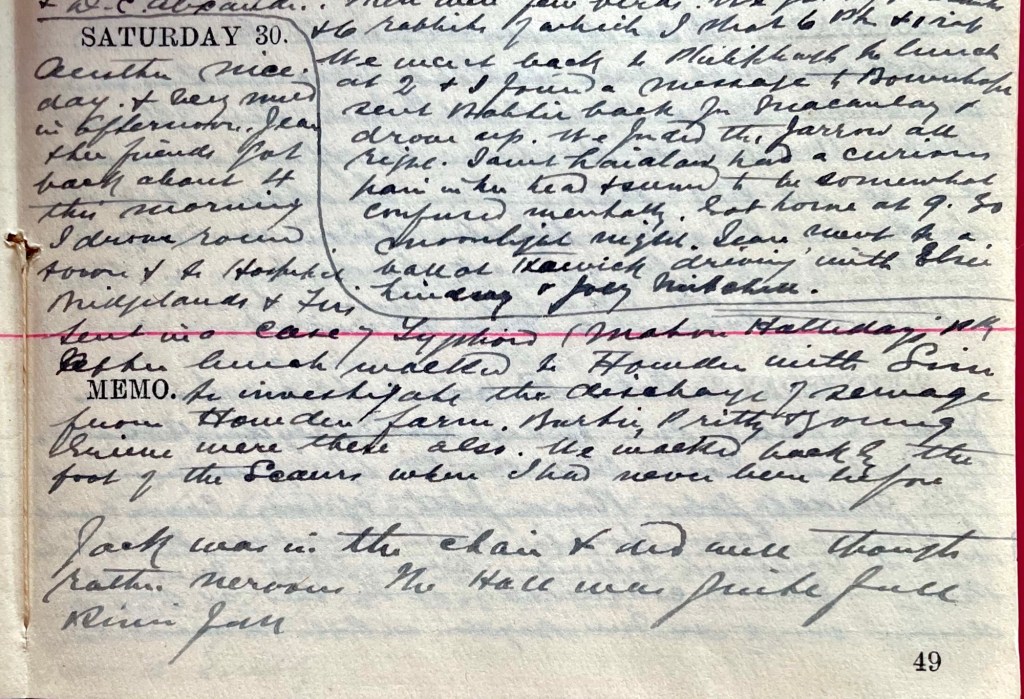 & D. C. Alexander. There were few birds. We got
& 6 rabbits of which I shot 6
We went back to Philiphaugh to lunch
at 2 & I found a message to Bowerhope
sent Robbie back for Macaulay &
drove up. We found the Jarrow all
right. Janet Laidlaw had a curious
pain in her head & seemed to be somewhat
confused mentally. Got home at 9.30
moonlight night. Jean went to a
ball at Hawick driving with Elsie
Lindsay & Joey Mitchell.
SATURDAY 30.
Another nice
day. & very mild
in afternoon. Jean
& her friends got
back about 4
this morning
I drove round
town & to Hospital
Bridgelands & Firs
sent in a case of Typhoid (Mabon Halliday
After lunch walked to Howden with Sim
MEMO. to investigate the discharge of sewage
from Howden farm. Pritty & young
were there also. We walked back by the
foot of the Scaurs where I had never been before
Jack was in the chair & did well though
rather nervous. The Hall was quite full
49